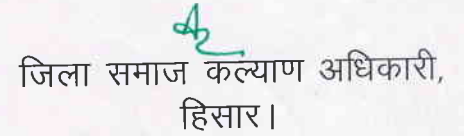 जिला समाज कल्याण अधिकारी,
हिसार।